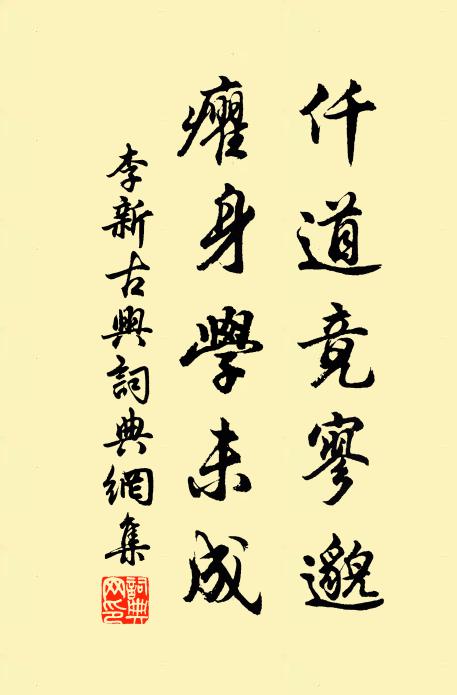 仟道竟寥邈
癯身學未成
李新古典詞典網集
詞典網印